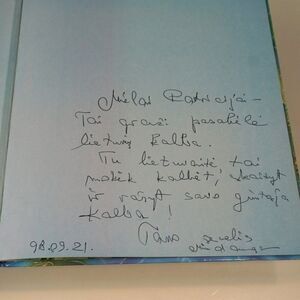 Mielai Patricijai –
Tai graži pasakėlė
lietuvių kalba.
Tu lietuvaitė, tai
mokėk kalbėt, skaityt
ir rašyt savo gimtąja
kalba!
Tavo
98.09.21.